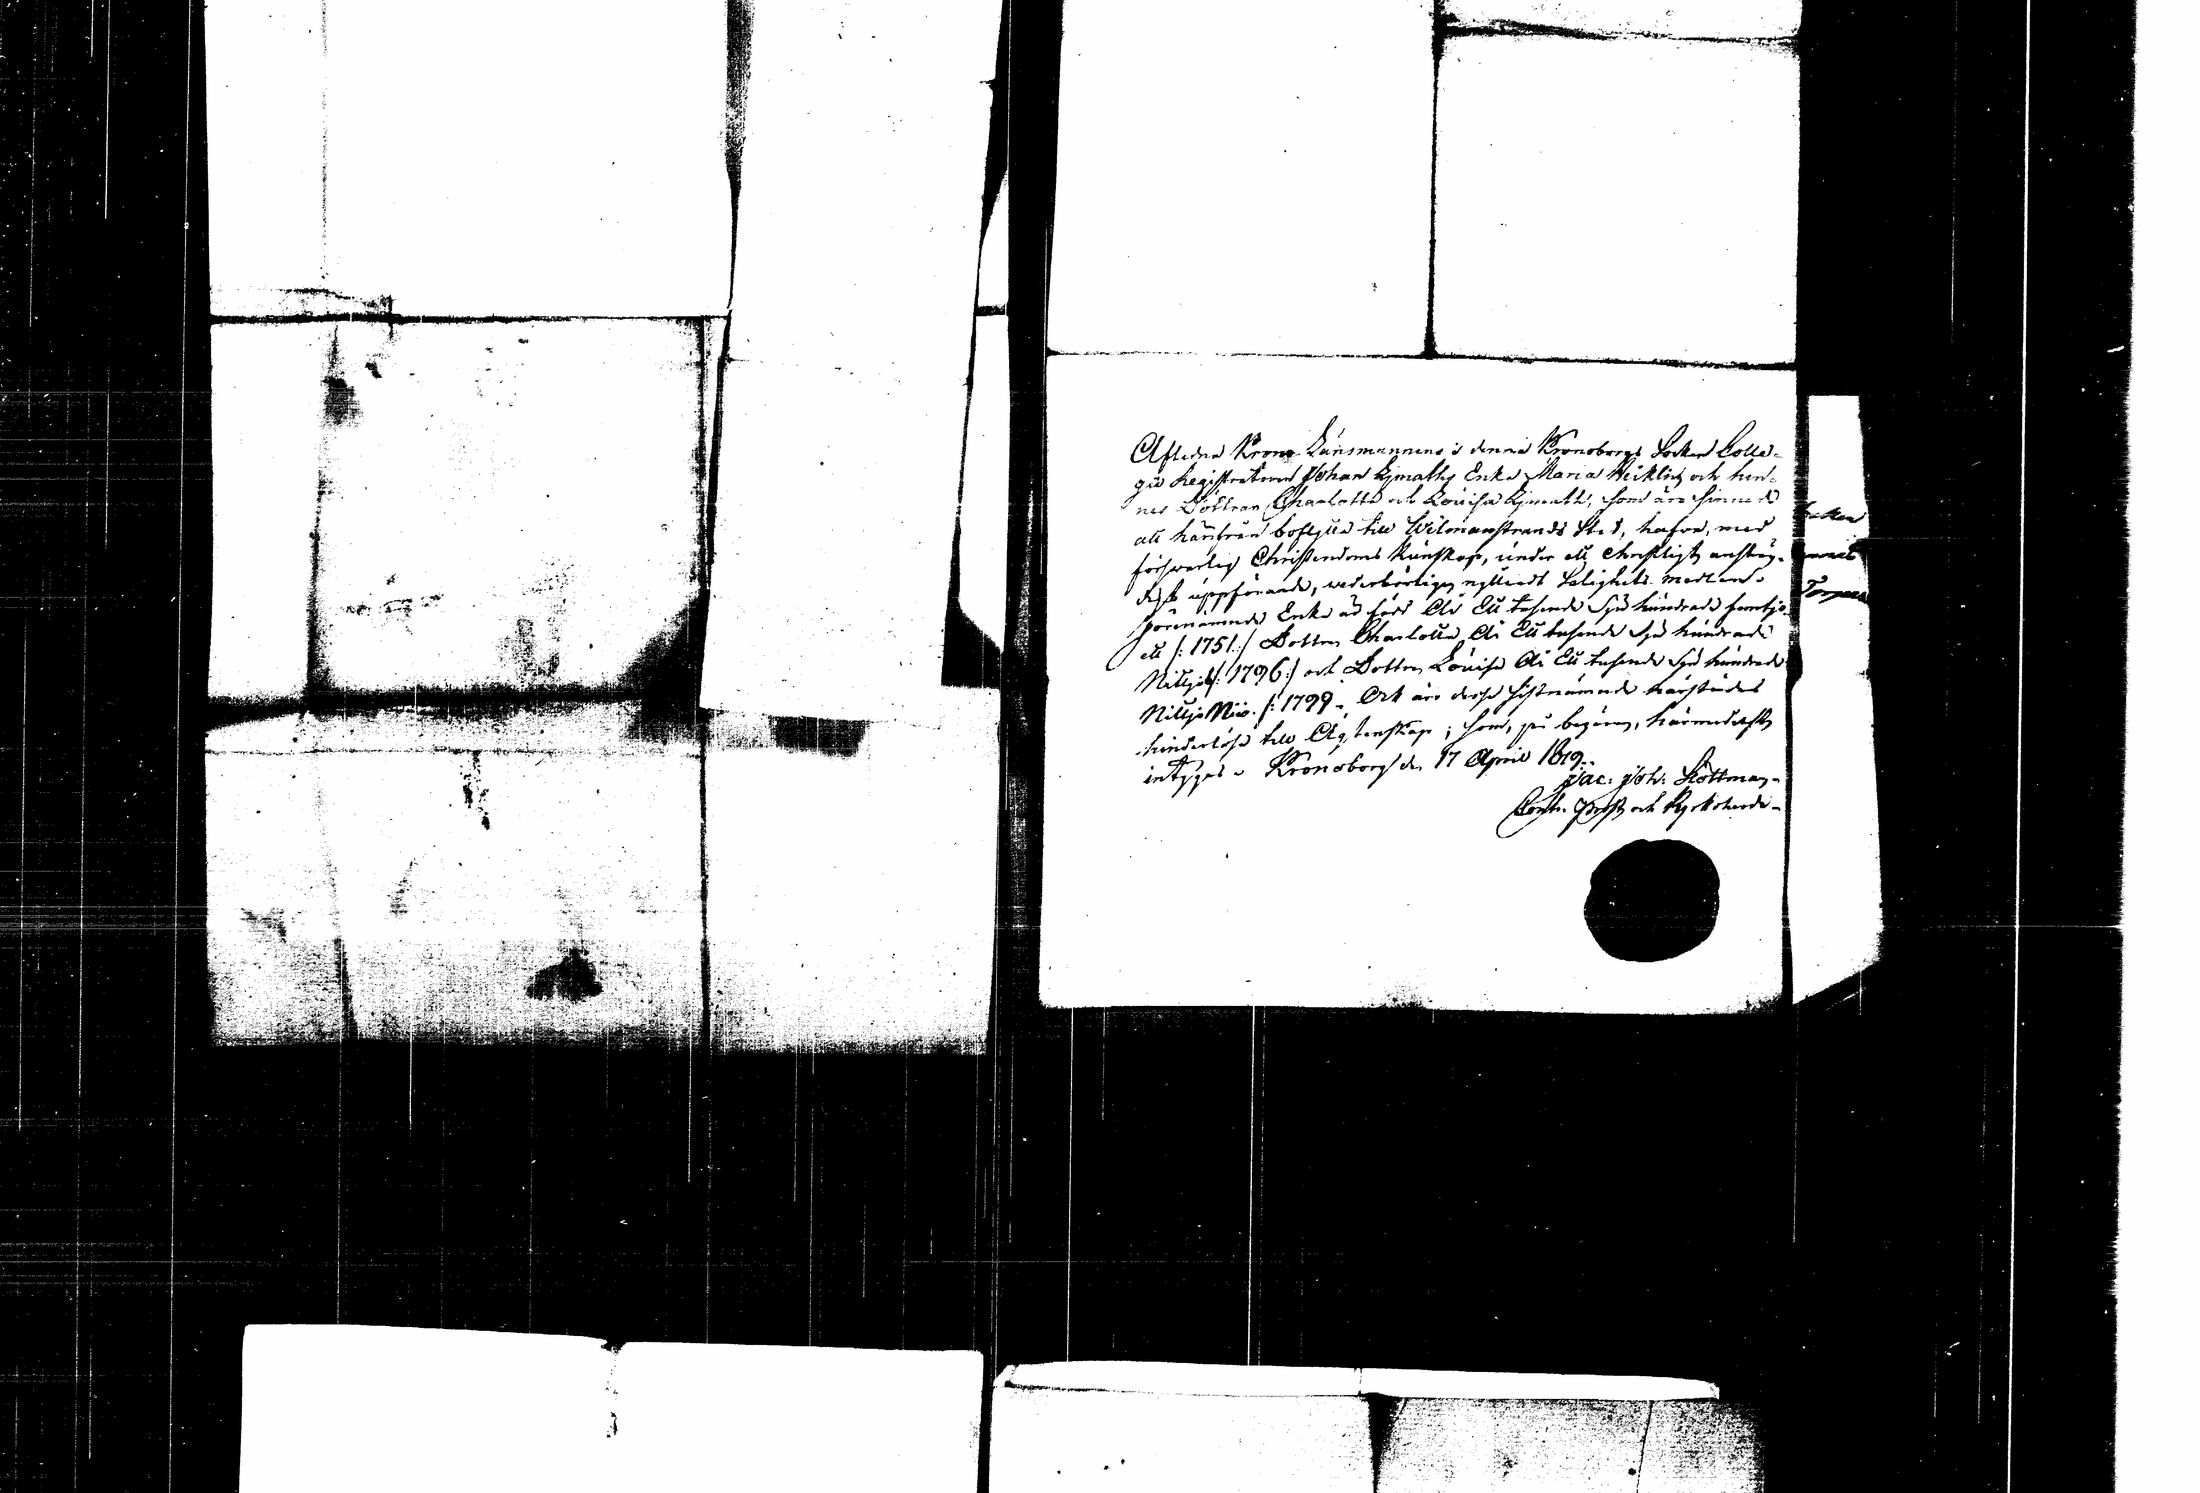 Aflidna Krono-Länsmannens i denna Kronoborgs Socken Colle-
gie Registratoren Johan Kjmaths Enka Maria och hen-
nes Döttrar Charlotta och Lovisa Kjmath, som äro sinnade
att härifrån boflytta till Wilmanstrands Stad, hafva, med
försvarlig Christendoms kunskap, under ett Christligt anstän-
digt uppförande, wederbörligen nyttjadt Salighets medlen.
förenämnde Enka är född År Ett tusende Sju hundrade femtjo
ett /: 1751:/ Dottren Charlotta År Ett tusende Sju hundrade
Nittjosex /: 1796:/ och Dottren Lovisa År Ett tusende Sju hundrade
Nittjo Nio. /: 1799. Ock äro desse sistnämnde härstädes
hinderlöse till Äktenskap; som, på begäran, härmedelst
intygas. Kronoborg den 17 April 1819.
Jac. Joh. Stottman.
Contr. Prost och Kyrkoherde.
Socken